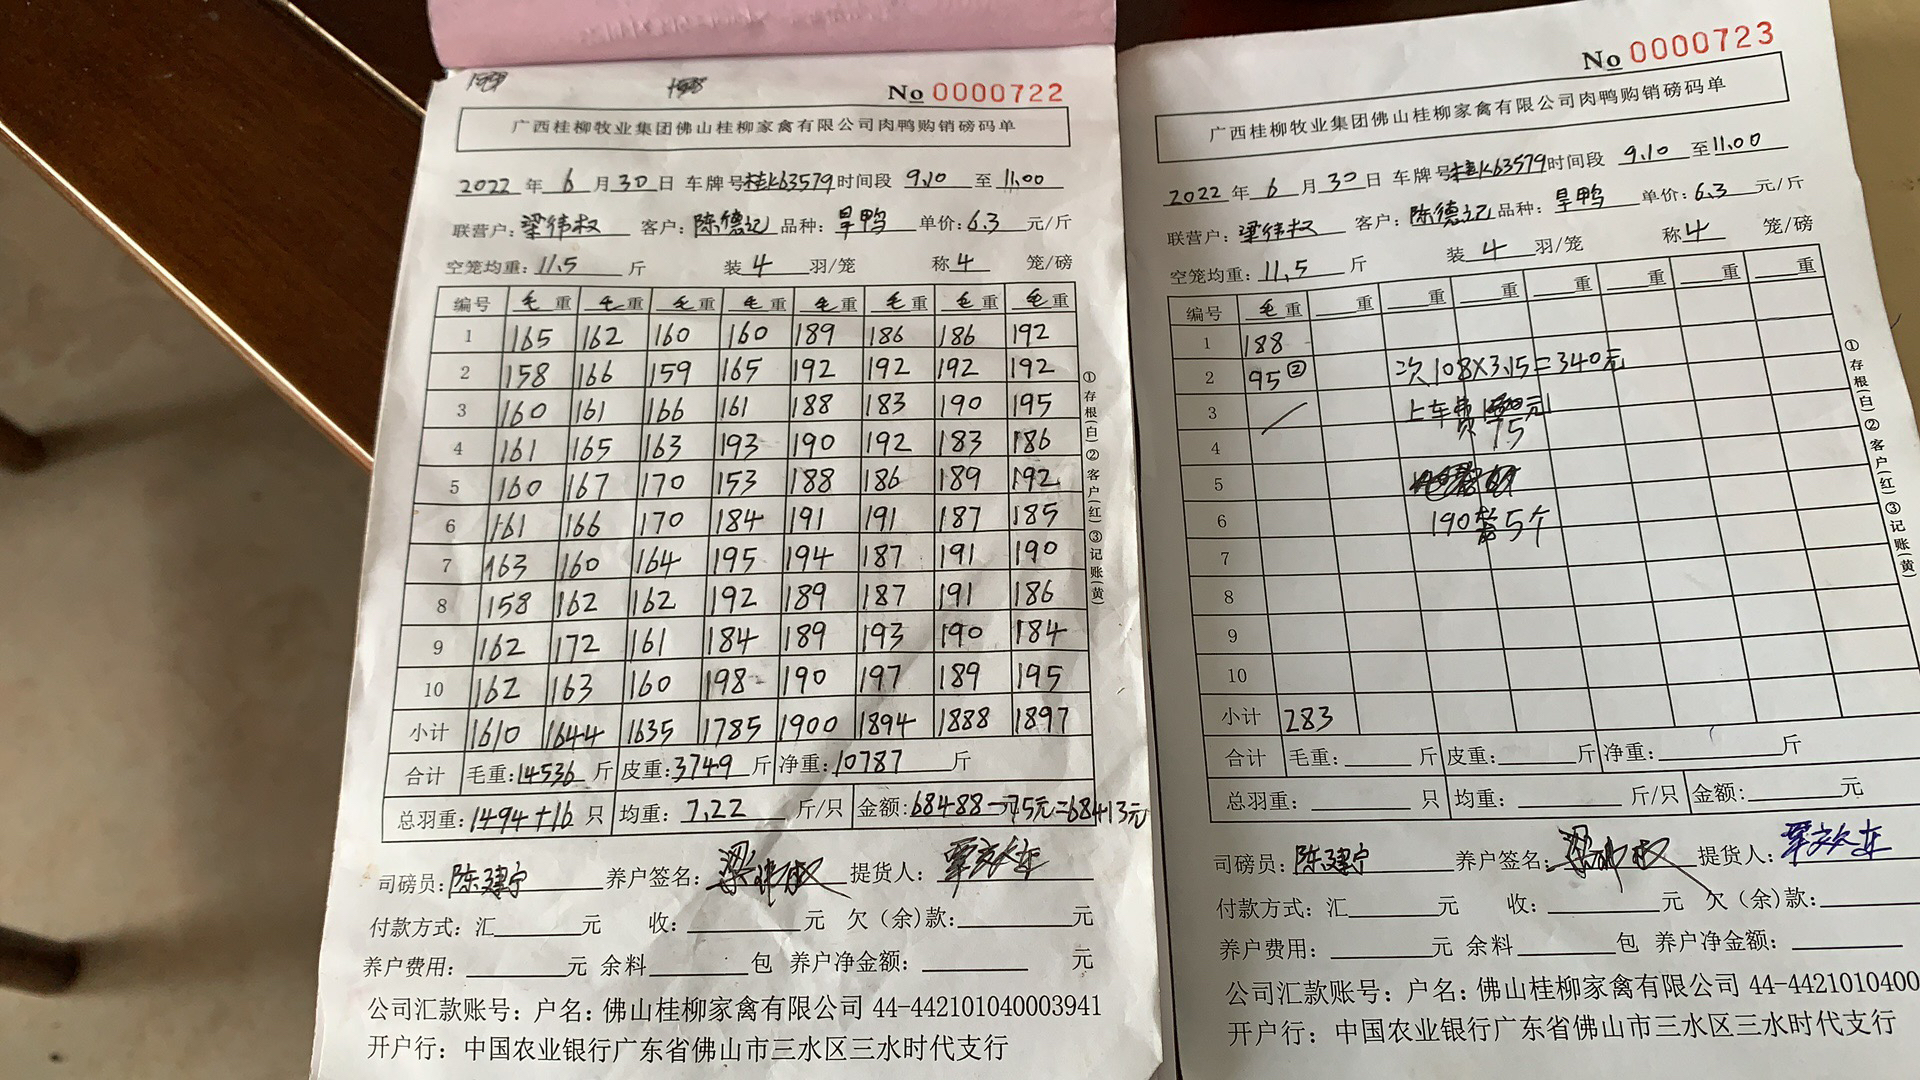 No 0000722
广西桂柳牧业集团佛山桂柳家禽有限公司肉鸭购销磅码单
2022 年 6 月 30 日 车牌号桂K63579 时间段 9.10 至 11.00
联营户: 梁伟权 客户: 陈德记 品种: 旱鸭 单价: 6.3 元/斤
空笼均重: 11.5 斤 装 4 羽/笼 称 4 笼/磅
编号 毛重 毛重 毛重 毛重 毛重 毛重 毛重 毛重
1 165 162 160 160 189 186 186 192
2 158 166 159 165 192 192 192 192
3 160 161 166 161 188 183 190 195
4 161 165 163 193 190 192 183 186
5 160 167 170 153 188 186 189 192
6 161 166 170 184 191 191 187 185
7 163 160 164 195 194 187 191 190
8 158 162 162 192 189 187 191 186
9 162 172 161 184 189 193 190 184
10 162 163 160 198 190 197 189 195
小计 1610 1644 1635 1785 1900 1894 1888 1897
合计 毛重: 14536 斤 皮重: 3749 斤 净重: 10787 斤
总羽重: 1494+16 只 均重: 7.22 斤/只 金额: 68488-75元=68413元
司磅员: 陈建宁 养户签名: 梁伟权 提货人:
付款方式: 汇 元 收: 元 欠(余)款: 元
养户费用: 元 余料 包 养户净金额: 元
公司汇款账号: 户名: 佛山桂柳家禽有限公司 44-442101040003941
开户行: 中国农业银行广东省佛山市三水区三水时代支行
①存根(白)②客户(红)③记账(黄)
No 0000723
广西桂柳牧业集团佛山桂柳家禽有限公司肉鸭购销磅码单
2022 年 6 月 30 日 车牌号桂K63579 时间段 9.10 至 11.00
联营户: 梁伟权 客户: 陈德记 品种: 旱鸭 单价: 6.3 元/斤
空笼均重: 11.5 斤 装 4 羽/笼 称 4 笼/磅
编号 毛重 重 重 重 重 重 重 重
1 188
2 95② 次108×3.15=340元
3 上车费 元
4 75
5
6 190 5个
7
8
9
10
小计 283
合计 毛重: 斤 皮重: 斤 净重: 斤
总羽重: 只 均重: 斤/只 金额: 元
司磅员: 陈建宁 养户签名: 梁伟权 提货人:
付款方式: 汇 元 收: 元 欠(余)款:
养户费用: 元 余料 包 养户净金额:
公司汇款账号: 户名: 佛山桂柳家禽有限公司 44-4421010400
开户行: 中国农业银行广东省佛山市三水区三水时代支行
①存根(白)②客户(红)③记账(黄)